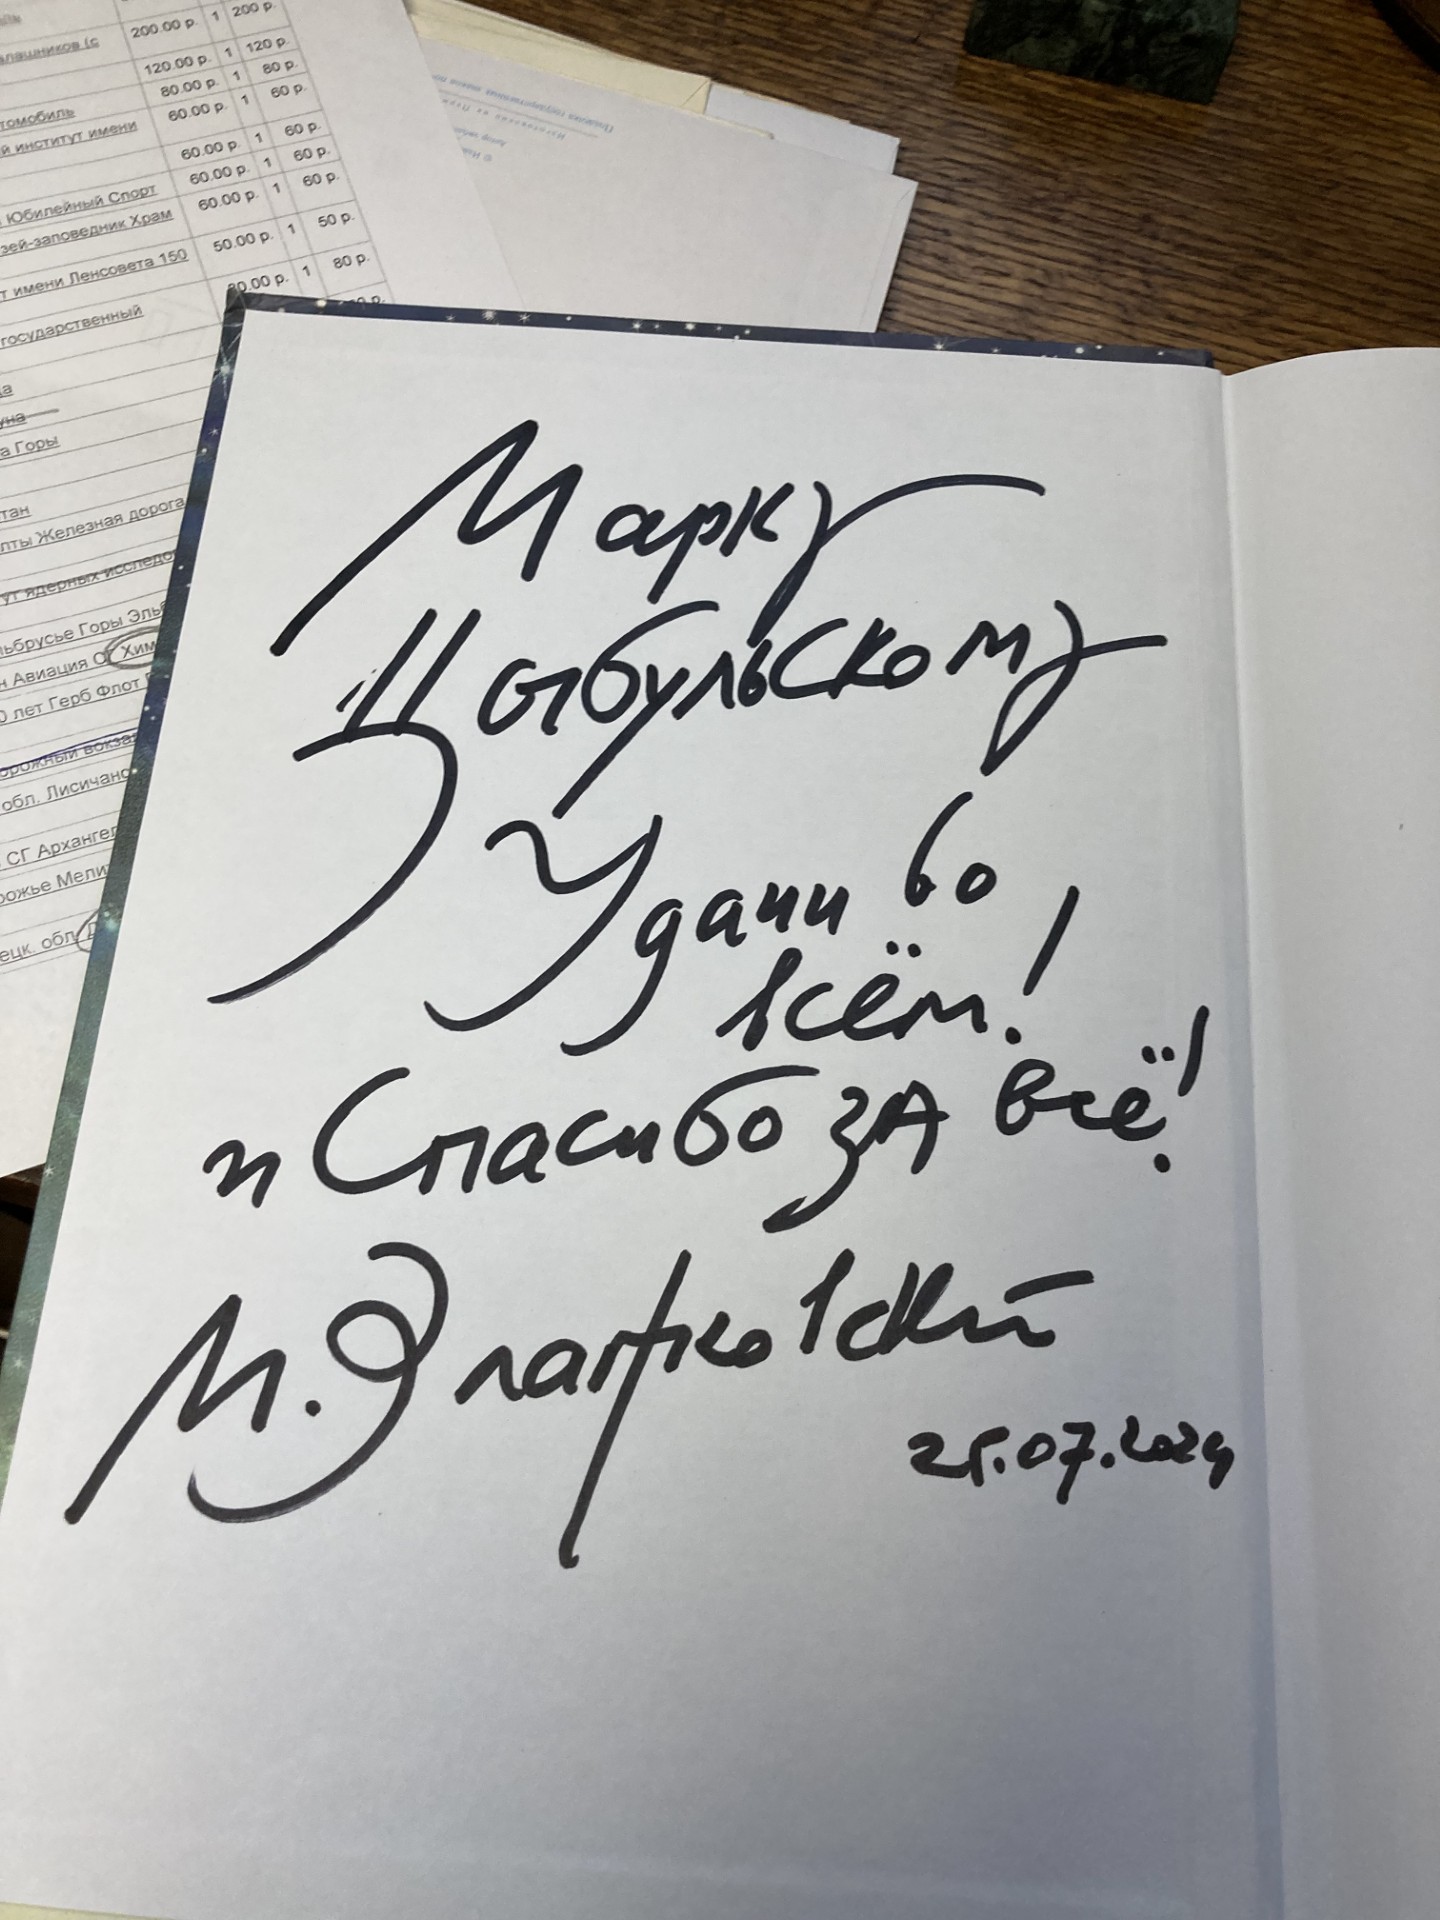 200.00 р. 1 200 р.
120.00 р. 1 120 р.
80.00 р. 1 80 р.
60.00 р. 1 60 р.
й институт имени
60.00 р. 1 60 р.
60.00 р. 1 60 р.
Юбилейный Спорт
60.00 р. 1 60 р.
зей-заповедник Храм
50.00 р. 1 50 р.
т имени Ленсовета 150
80.00 р. 1 80 р.
государственный
а Горы
тан
лты Железная дорога
ут ядерных исследо
льбрусье Горы Эльб
н Авиация О Хим
0 лет Герб Флот
орожный вокза
обл. Лисичанс
СГ Архангел
рожье Мели
ецк. обл. Д
Марку
Цыбульскому
Удачи во
всём!
и Спасибо за всё!
М. Златковский
25.07.2024